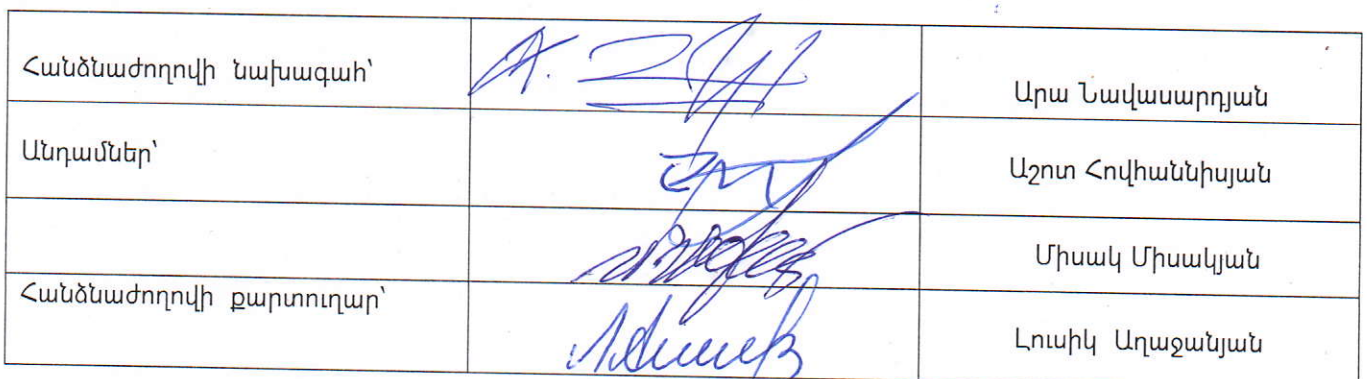 Հանձնաժողովի նախագահ՝
Արա Նավասարդյան
Անդամներ՝
Աշոտ Հովհաննիսյան
Միսակ Միսակյան
Հանձնաժողովի քարտուղար՝
Լուսիկ Աղաջանյան